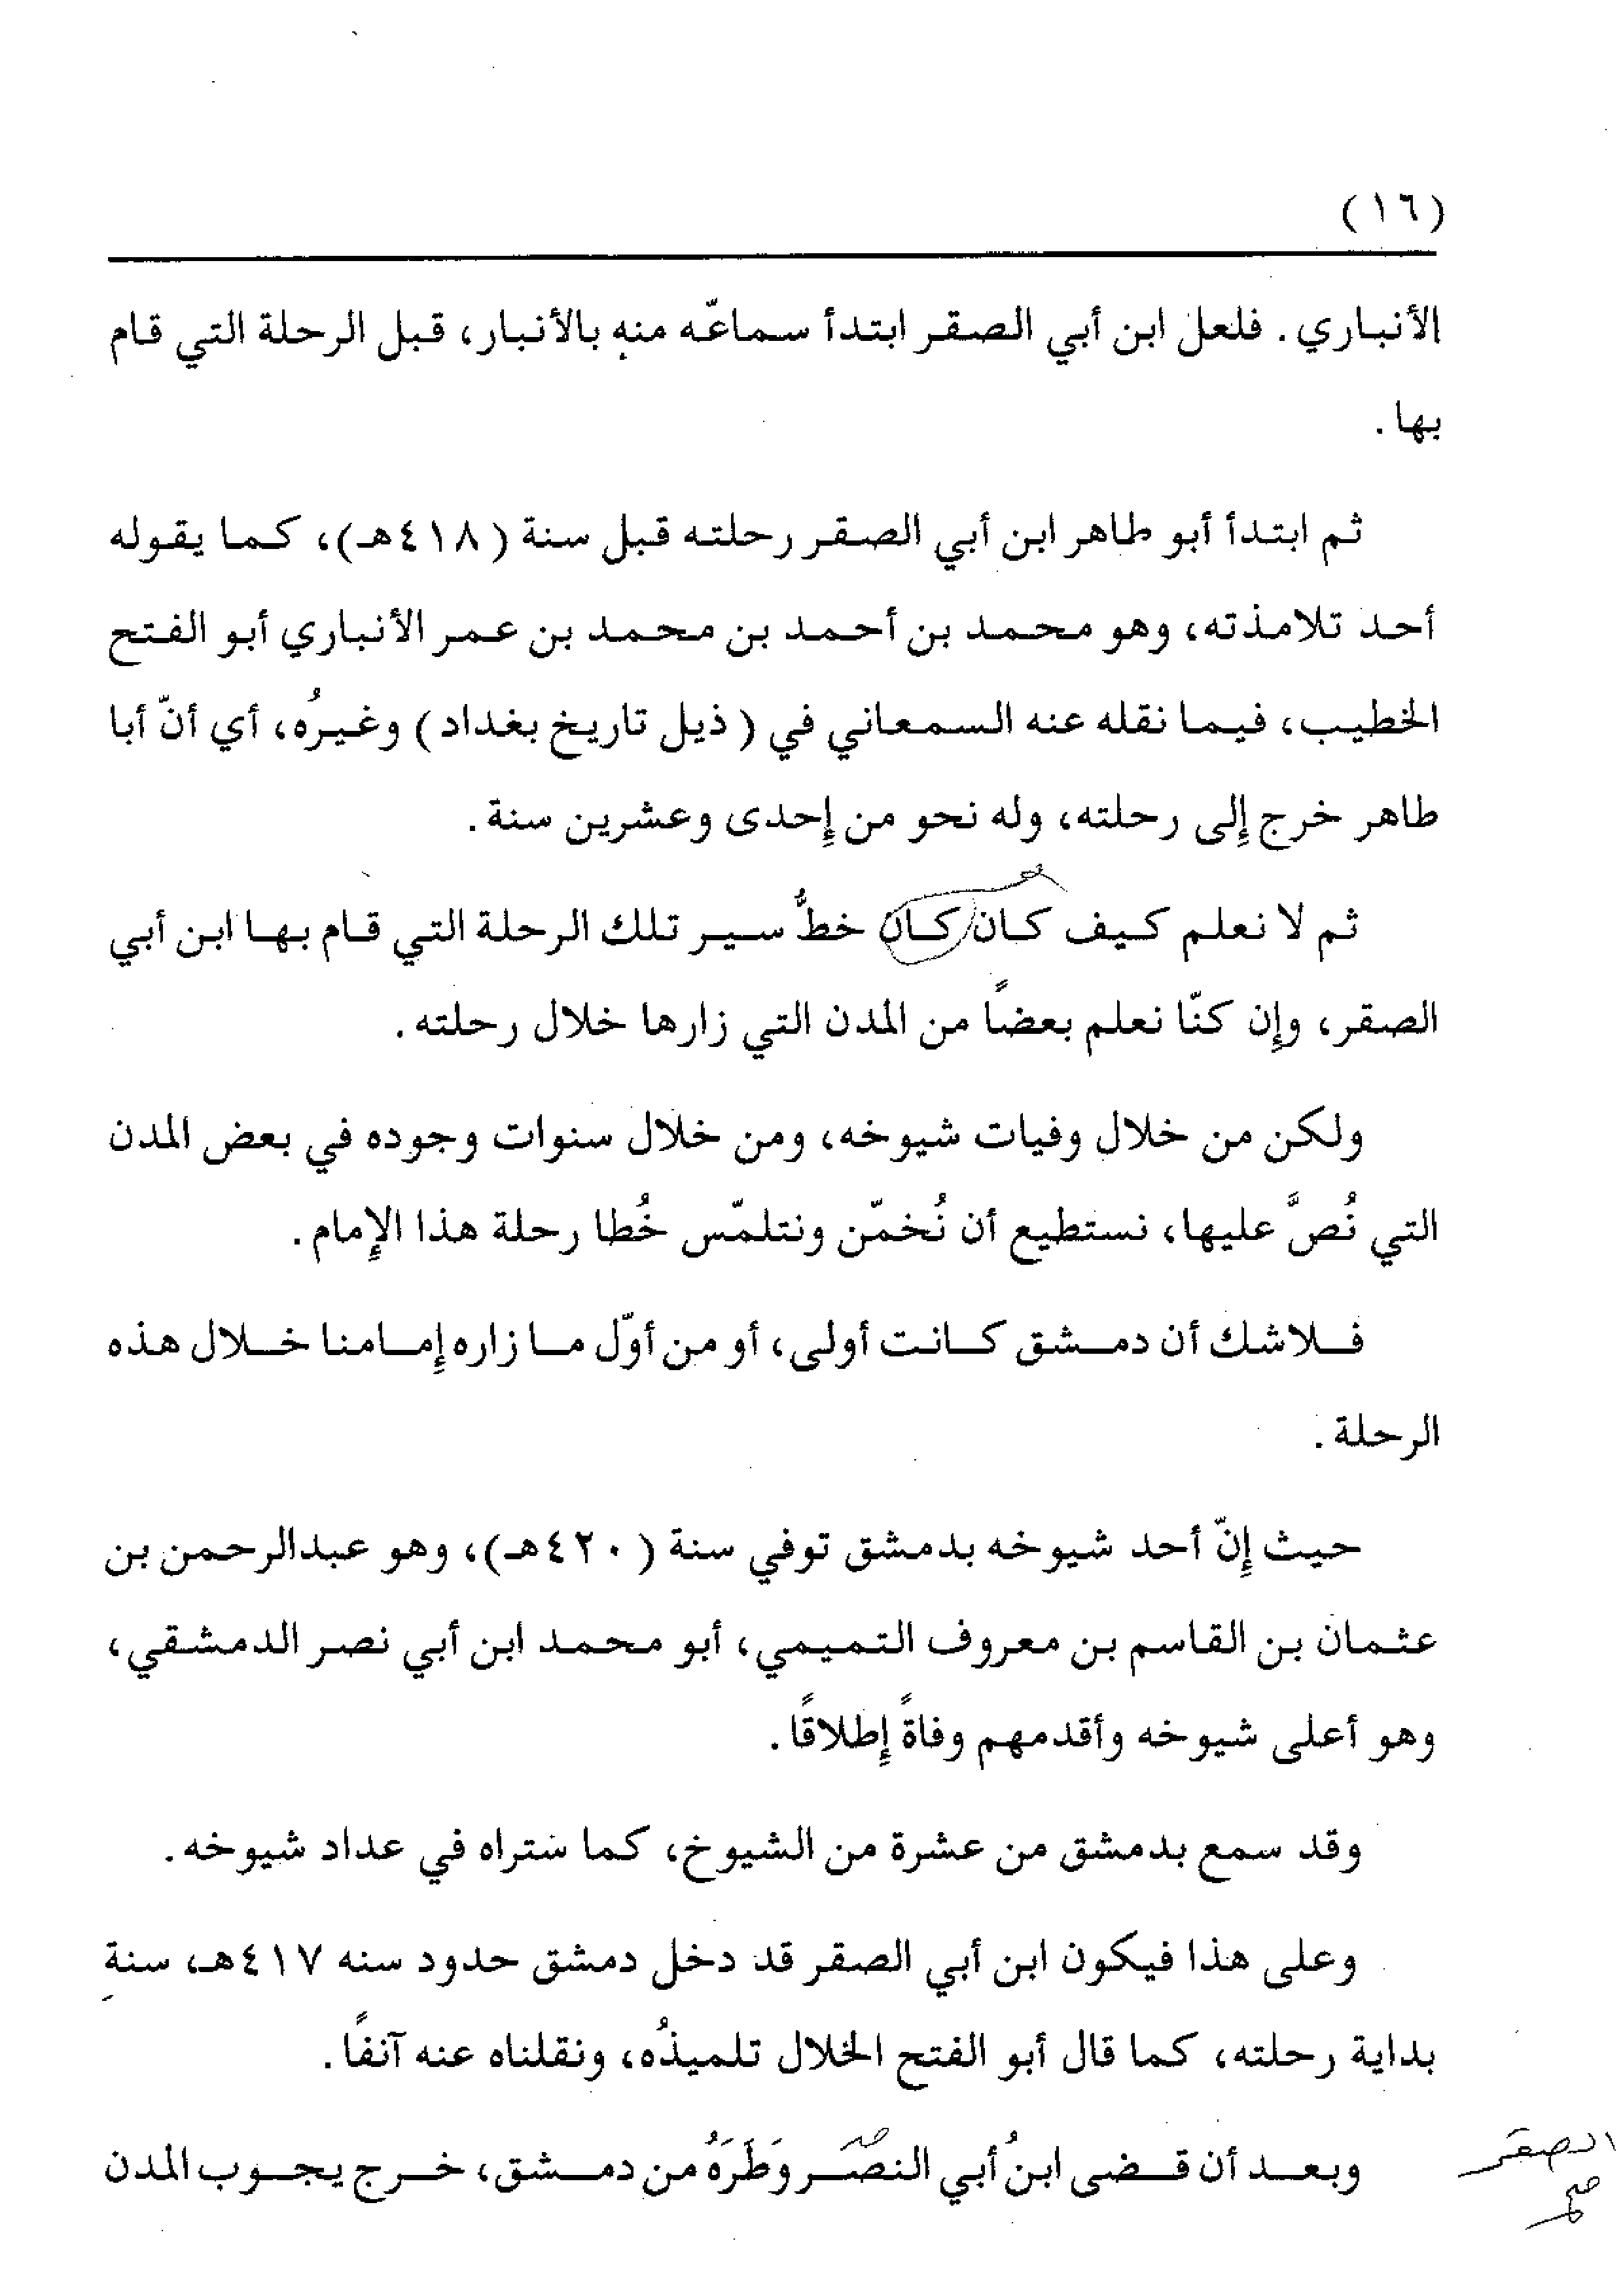 (١٦)
الأنباري. فلعل ابن أبي الصقر ابتدأ سماعَه منه بالأنبار، قبل الرحلة التي قام
بها.
ثم ابتدأ أبو طاهر ابن أبي الصقر رحلته قبل سنة (٤١٨هـ)، كما يقوله
أحد تلامذته، وهو محمد بن أحمد بن محمد بن عمر الأنباري أبو الفتح
الخطيب، فيما نقله عنه السمعاني في (ذيل تاريخ بغداد) وغيرُه، أي أنّ أبا
طاهر خرج إلى رحلته، وله نحو من إحدى وعشرين سنة.
ثم لا نعلم كيف كان كان خطُّ سير تلك الرحلة التي قام بها ابن أبي
الصقر، وإن كنّا نعلم بعضًا من المدن التي زارها خلال رحلته.
ولكن من خلال وفيات شيوخه، ومن خلال سنوات وجوده في بعض المدن
التي نُصَّ عليها، نستطيع أن نُخمّن ونتلمّس خُطا رحلة هذا الإمام.
فلاشك أن دمشق كانت أولى، أو من أوّل ما زاره إمامنا خلال هذه
الرحلة.
حيث إنّ أحد شيوخه بدمشق توفي سنة (٤٢٠هـ)، وهو عبدالرحمن بن
عثمان بن القاسم بن معروف التميمي، أبو محمد ابن أبي نصر الدمشقي،
وهو أعلى شيوخه وأقدمهم وفاةً إطلاقًا.
وقد سمع بدمشق من عشرة من الشيوخ، كما ستراه في عداد شيوخه.
وعلى هذا فيكون ابن أبي الصقر قد دخل دمشق حدود سنه ٤١٧هـ، سنة
بداية رحلته، كما قال أبو الفتح الخلال تلميذُه، ونقلناه عنه آنفًا.
وبعد أن قضى ابنُ أبي النصر وَطَرَهُ من دمشق، خرج يجوب المدن
الصقر
صح